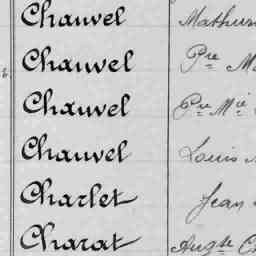 Chauvel Mathur
Chauvel Pre M
Chauvel Pre Mie
Chauvel Louis
Charlet Jean
Charat Augte Ch